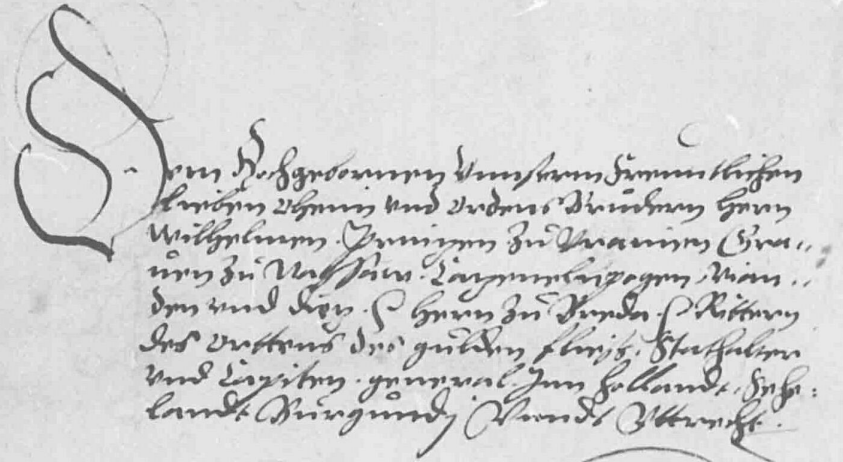 Dem Hochgebornnen Vnnserm Freundtlichen
lieben Ohenn vnd Ordens Brüdern Herrn
Wilhelmen. Prinnzen zů Vranien Gra„
uen zů Nassaw. Catzenelnpogen, Vian„
den vnd Diez. Herrn zů Breda. Rittern
des Orttens des gůlden fließ. Stathalter
vnd Capiten. general. Inn Hollandt. Sehe„
landt Burgůndj Vnndt Vttrecht.